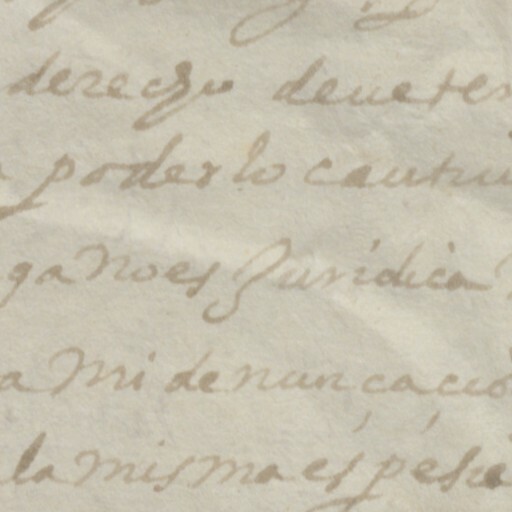 derecho deue ter
poderlo cautiu
ga no es Juridica
a mi denuncacio
la misma espésie